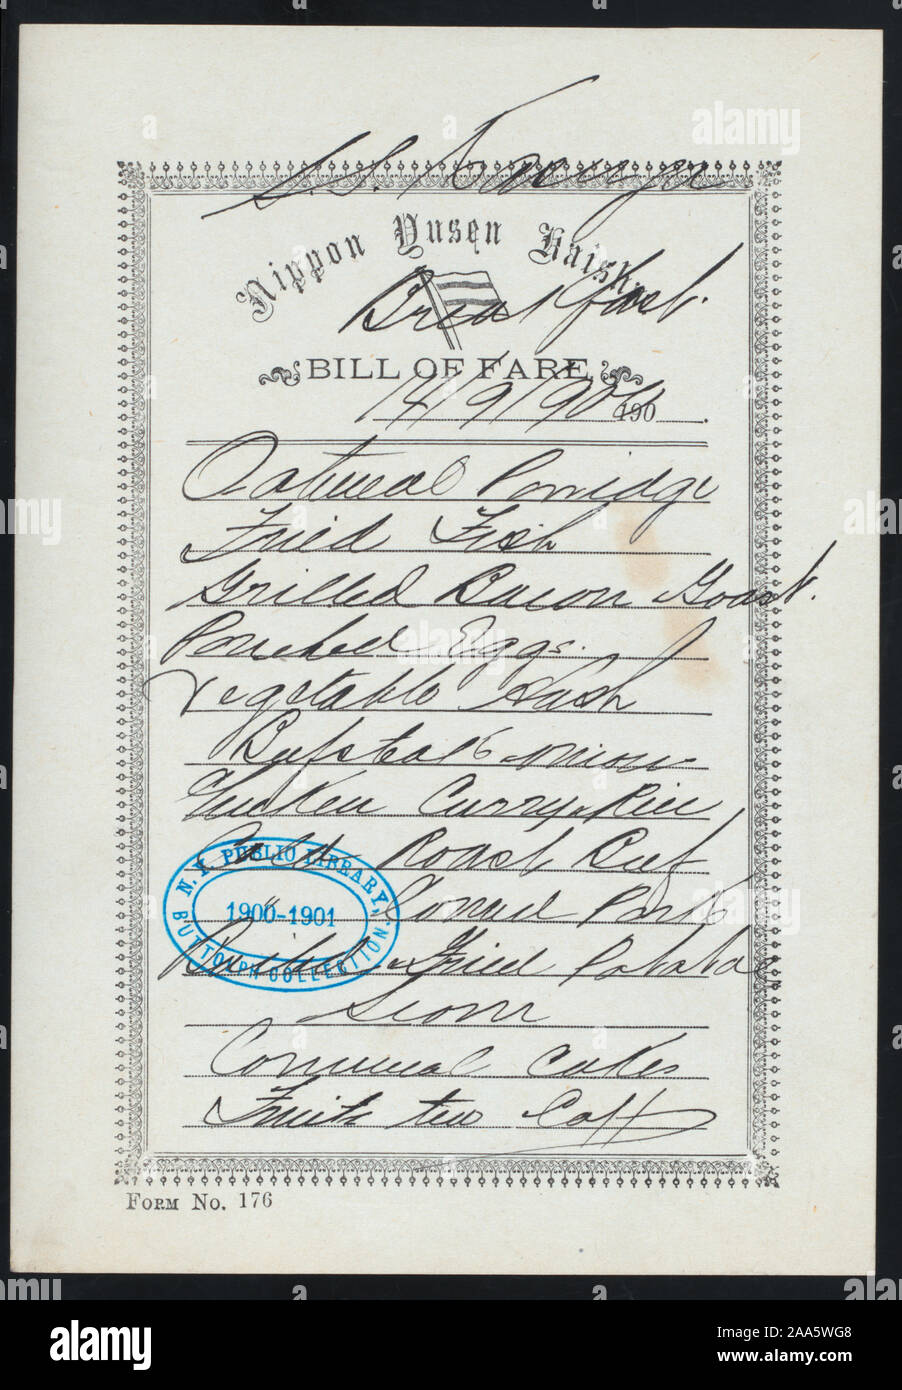 S.S.
Nippon Yusen Kaisha
Breakfast.
BILL OF FARE
14/9/900 190
Oatmeal Porridge
Fried Fish
Grilled Bacon Toast.
Poached Eggs.
Vegetable Hash
Bufsteak Onion
Chicken Curry & Rice
Cold Roast Beef
" Corned Pork
Boiled & Fried Potatoe
Cornmeal Cakes
Fruit tea Coff
N. Y. PUBLIC LIBRARY,
1900-1901
BUTTOLPH COLLECTION.
FORM NO. 176
alamy
Image ID: 2AA5WG8
www.alamy.com